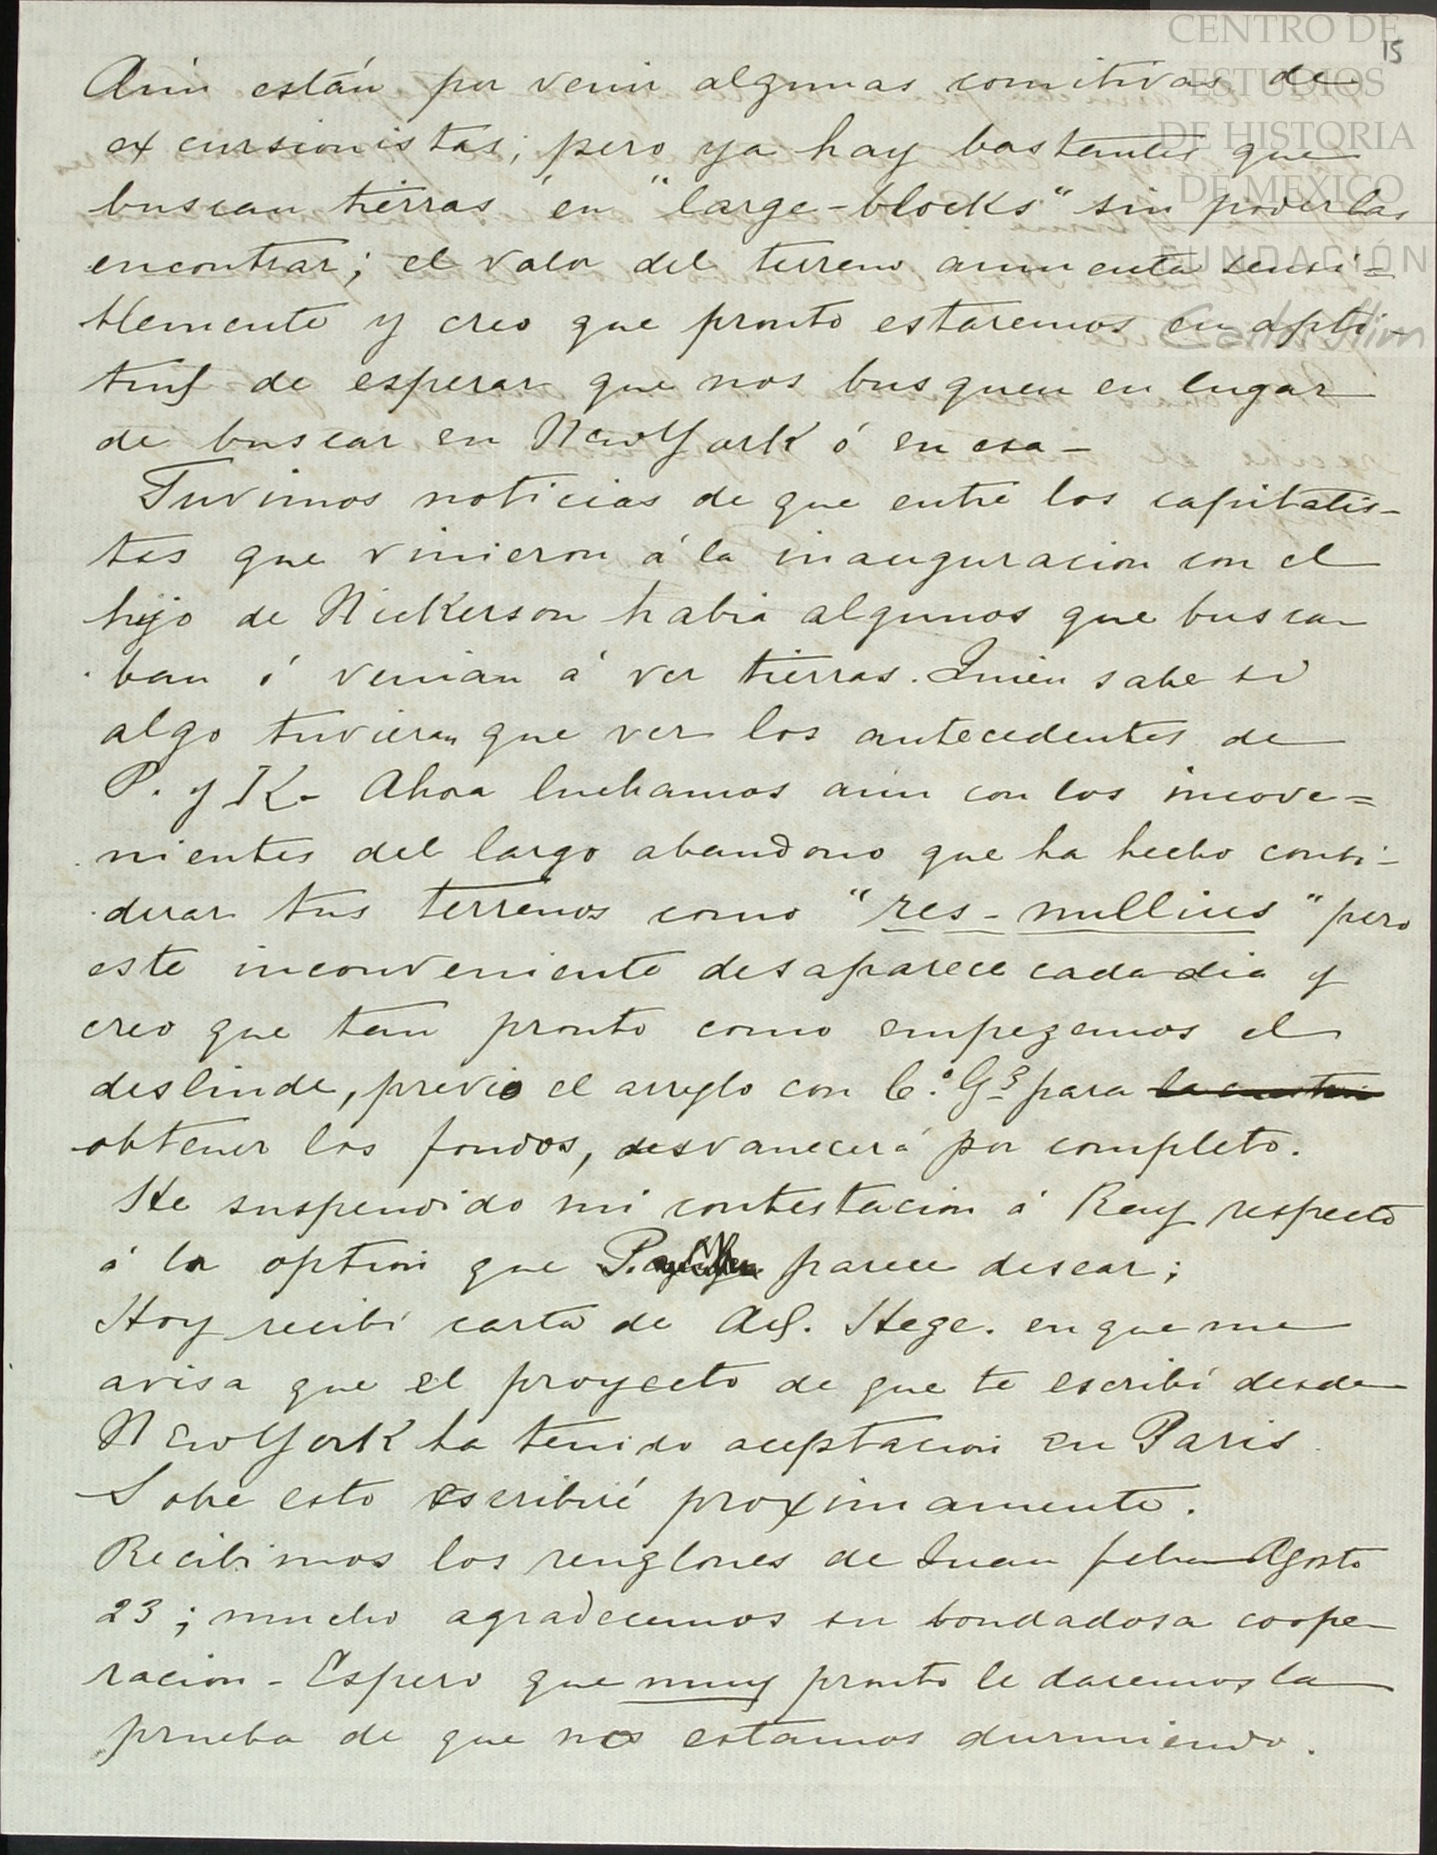 CENTRO DE
ESTUDIOS
DE HISTORIA
DE MEXICO
FUNDACIÓN
Carlos Slim
15
Aún están por venir algunas comitivas de
excursionistas; pero ya hay bastantes que
buscan tierras en "large-blocks" sin poderlas
encontrar; el valor del terreno aumenta sensi=
blemente y creo que pronto estaremos en apti-
tud de esperar que nos busquen en lugar
de buscar en New York ó en esa-
Tuvimos noticias de que entre los capitalis-
tas que vinieron á la inauguracion con el
hijo de Nickerson habia algunos que busca-
ban ó venian á ver tierras. Quien sabe si
algo tuvieran que ver los antecedentes de
P. y K- Ahora luchamos aún con los incove=
nientes del largo abandono que ha hecho consi-
derar tus terrenos como "res-nullius" pero
este inconveniente desaparece cada dia y
creo que tan pronto como empezemos el
deslinde, previo el arreglo con C.º G. para
obtener los fondos, desvanecerá por completo.
He suspendido mi contestacion á Rey respecto
á la option que P. parece desear;
Hoy recibí carta de Ad. Hege. en que me
avisa que el proyecto de que te escribí desde
New York ha tenido aceptacion en Paris
Sobe esto escribiré proximamente.
Recibimos los renglones de Juan fcha Agosto
23; mucho agradecemos su bondadosa coope-
racion- Espero que muy pronto le daremos la
prueba de que no estamos durmiendo.